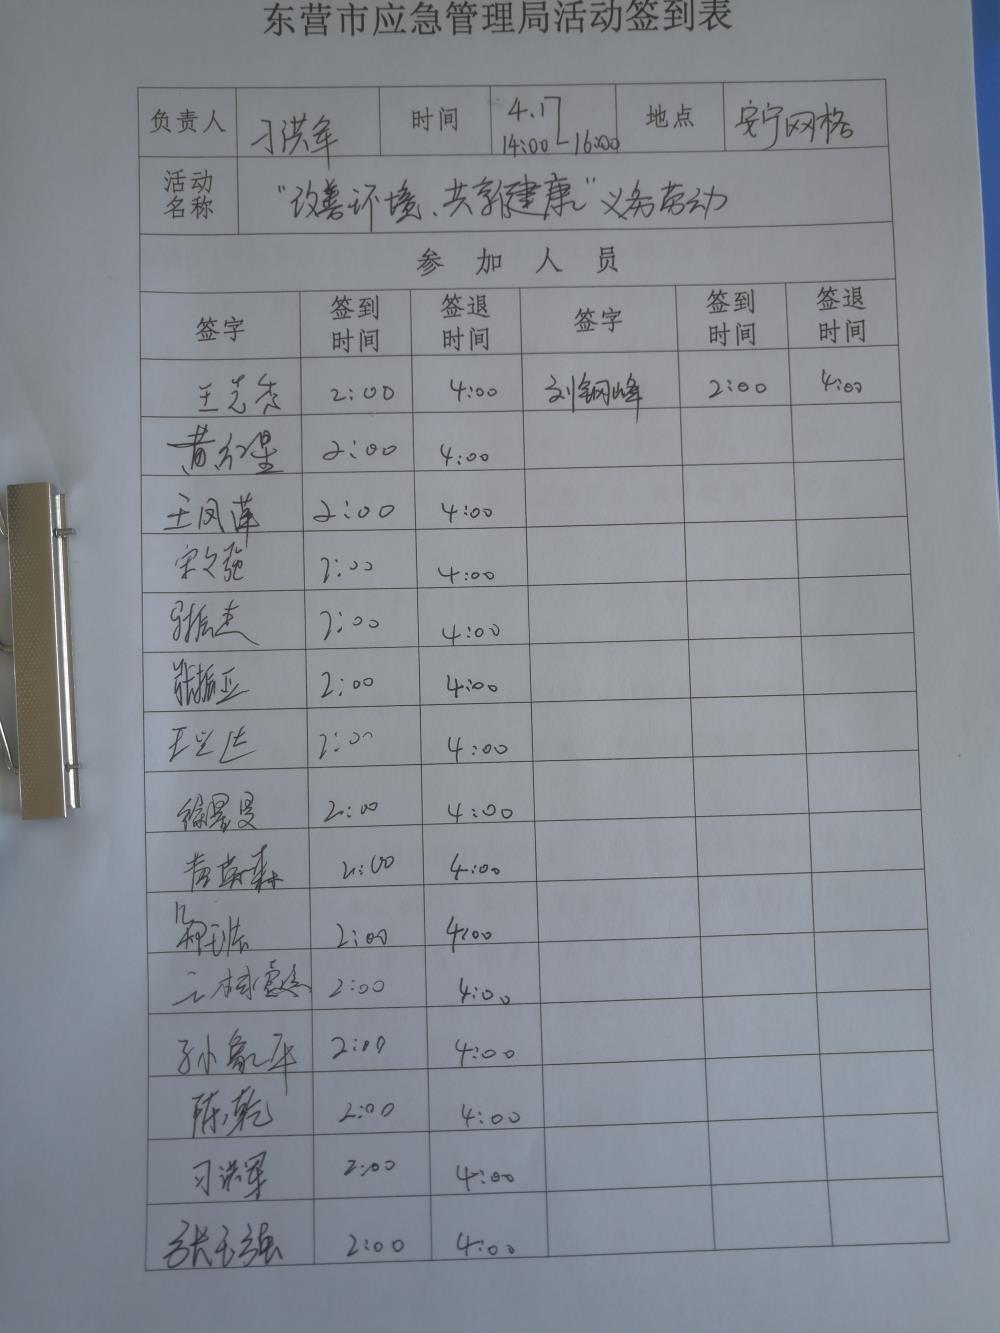 东营市应急管理局活动签到表
负责人 刁洪军 时间 4.17 14:00-16:00 地点 安宁网格
活动名称 "改善环境、共享健康"义务劳动
参加人员
签字 签到时间 签退时间 签字 签到时间 签退时间
2:00 4:00 刘钢峰 2:00 4:00
黄红星 2:00 4:00
王凤莲 2:00 4:00
宋文强 2:00 4:00
2:00 4:00
张振亚 2:00 4:00
2:00 4:00
2:00 4:00
2:00 4:00
2:00 4:00
2:00 4:00
孙象平 2:00 4:00
陈乾 2:00 4:00
刁洪军 2:00 4:00
张玉强 2:00 4:00